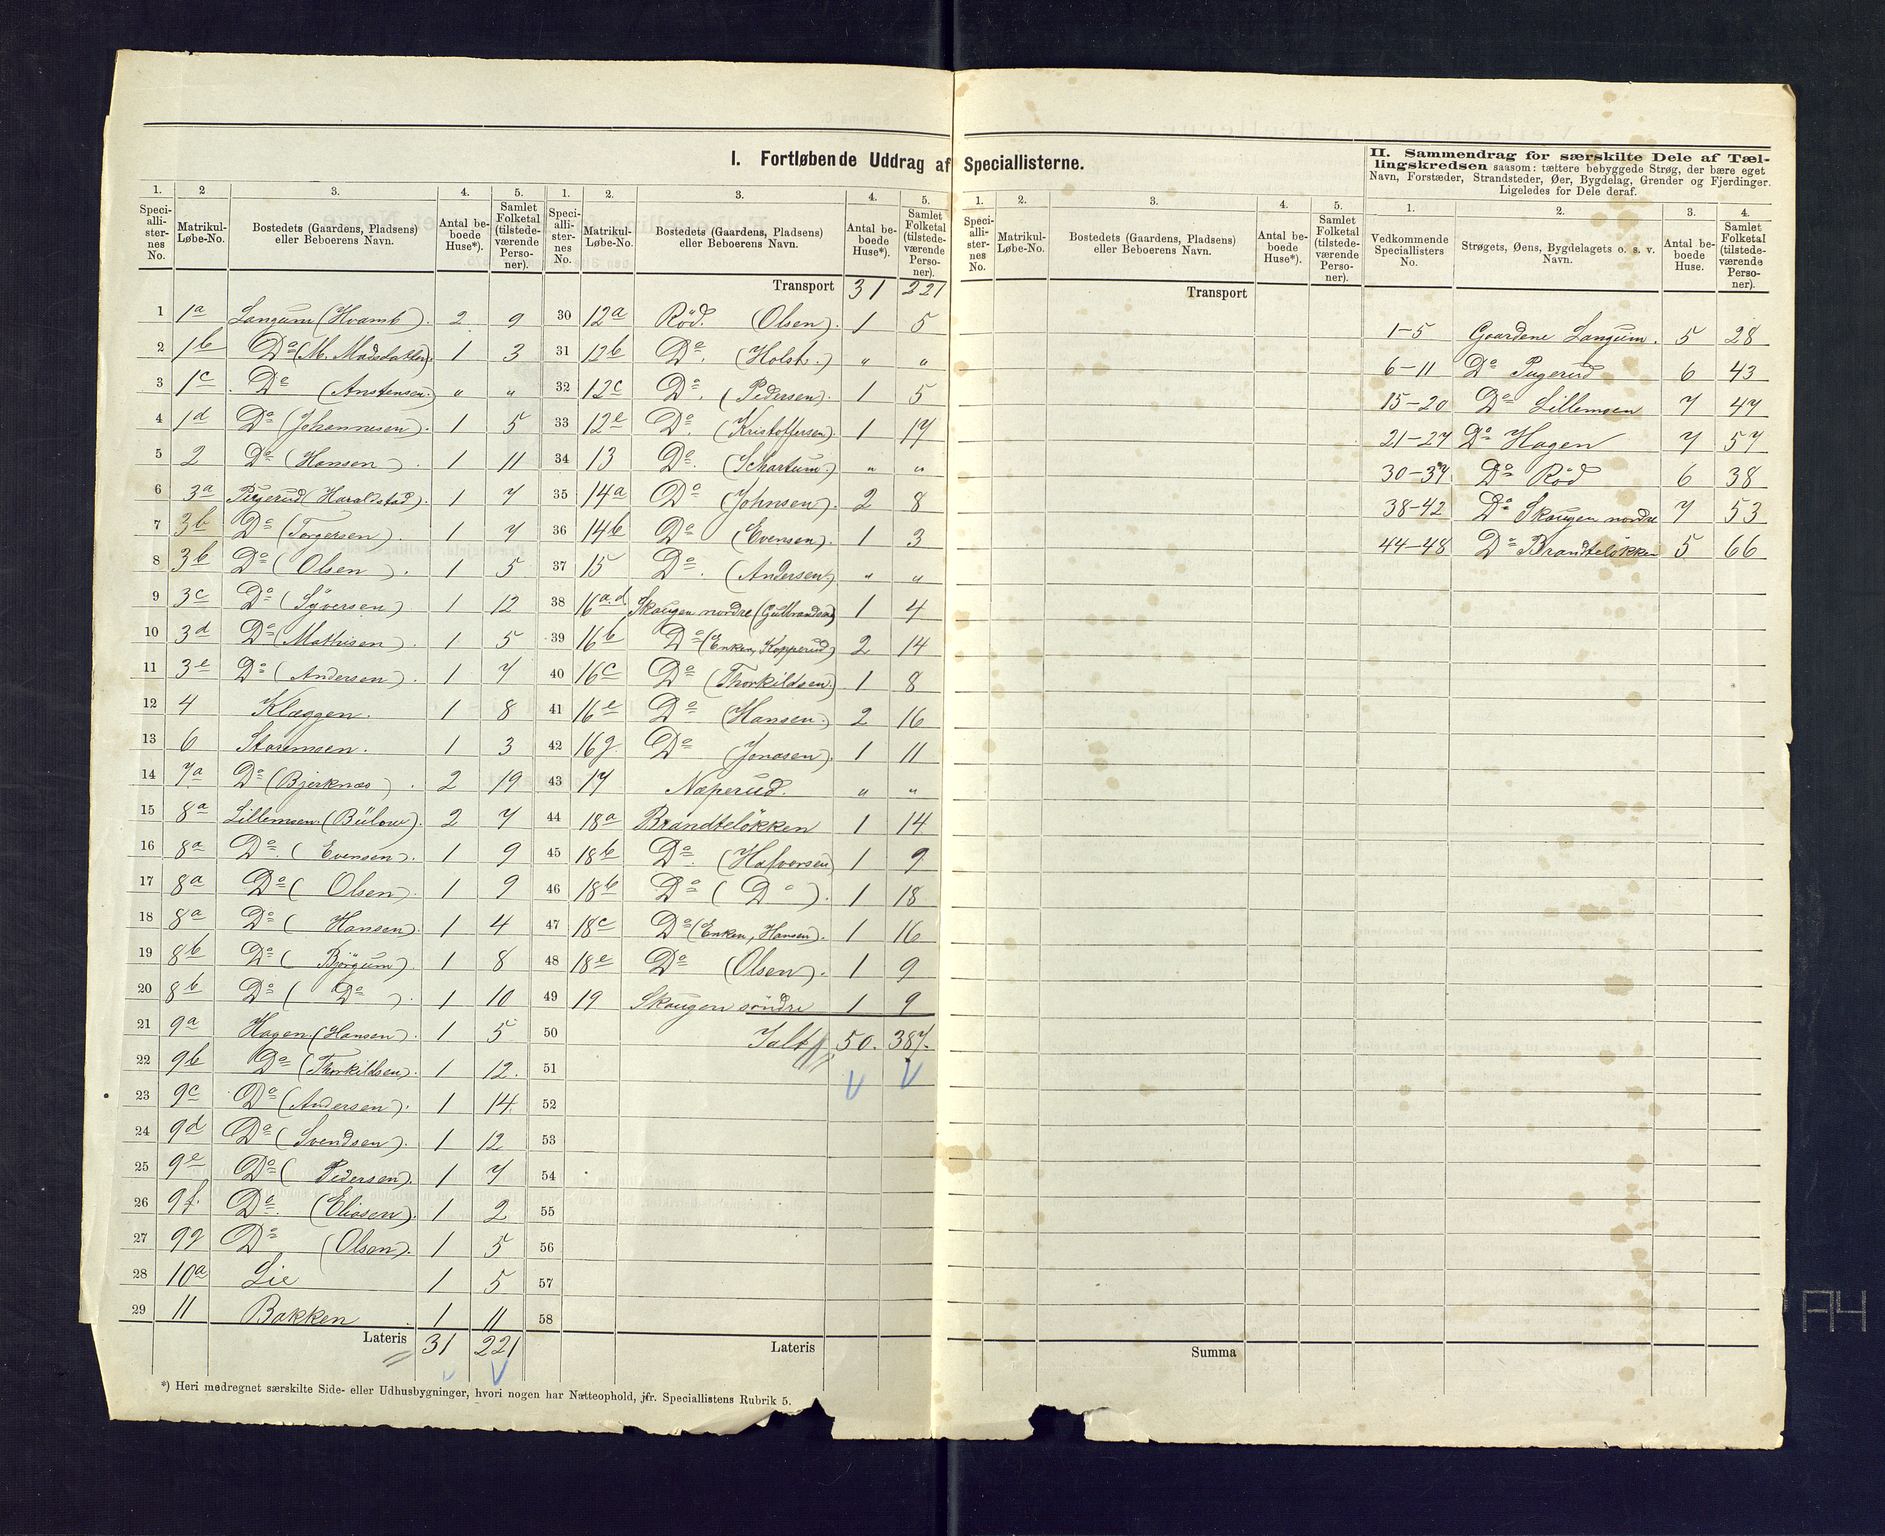 I. Fortløbende Uddrag af Speciallisterne.
1. 2 3. 4. 5.
Speciallisternes No. Matrikul-Løbe-No. Bostedets (Gaardens, Pladsens) eller Beboerens Navn. Antal beboede Huse*). Samlet Folketal (tilstedeværende Personer).
1 1a Langum (Hvamb). 2 9
2 1b Do (M. Madsdatter). 1 3
3 1c Do (Anstensen.) „ „
4 1d Do (Johannesen). 1 5
5 2 Do (Hansen). 1 11
6 3a Pugerud (Haraldstad). 1 7
7 3b Do (Torgersen). 1 7
8 3b Do (Olsen). 1 5
9 3c Do (Syversen) 1 12
10 3d Do (Mathisen). 1 5
11 3e Do (Andersen). 1 7
12 4 Klæggen. 1 8
13 6 Storemoen. 1 3
14 7a Do (Bjerknæs). 2 19
15 8a Lillemoen. (Bülow). 2 7
16 8a Do. (Evensen). 1 9
17 8a Do (Olsen). 1 9
18 8a Do (Hansen). 1 4
19 8b Do (Bjørgum). 1 8
20 8b Do (Do). 1 10
21 9a Hagen. (Hansen). 1 5
22 9b Do (Thorkildsen). 1 12.
23 9c Do (Andersen). 1 14
24 9d Do (Svendsen). 1 12
25 9e Do (Pedersen). 1 7
26 9f. Do. (Eliasen). 1 2
27 9g Do (Olsen). 1 5
28 10a Lie 1 5
29 11 Bakken 1 11
Lateris 31 221
*) Heri medregnet særskilte Side- eller Udhusbygninger, hvori nogen har Natteophold, jfr. Speciallistens Rubrik 5.
1. 2. 3. 4. 5.
Speciallisternes No. Matrikul-Løbe-No. Bostedets (Gaardens, Pladsens) eller Beboerens Navn. Antal beboede Huse*). Samlet Folketal (tilstedeværende Personer).
Transport 31 221
30 12a Röd. (Olsen). 1 5
31 12b Do. (Holst.) „ „
32 12c Do. (Pedersen). 1 5
33 12e Do. (Kristoffersen). 1 17
34 13 Do. (Schartum.) „ „
35 14a Do (Johnsen). 2 8
36 14b Do (Evensen). 1 3
37 15 Do. (Andersen) „ „
38 16a.d Skaugen nordre (Gulbrandsen) 1 4
39 16b Do (Enken, Kopperud) 2 14
40 16c Do (Thorkildsen.) 1 8
41 16e Do (Hansen.) 2 16
42 16g. Do (Jonasen). 1 11
43 17 Næperud. „ „
44 18a Brandtelökken 1 14
45 18b Do. (Halvorsen) 1 9
46 18b Do (Do). 1 18
47 18c Do (Enken, Hansen). 1 16
48 18e Do (Olsen). 1 9
49 19 Skaugen söndre 1 9
50 Ialt 50. 387.
51
52
53
54
55
56
57
58
Lateris
1. 2. 3. 4. 5.
Speciallisternes No. Matrikul-Løbe-No. Bostedets (Gaardens, Pladsens) eller Beboerens Navn. Antal beboede Huse*). Samlet Folketal (tilstedeværende Personer).
Transport
Summa
II. Sammendrag for særskilte Dele af Tællingskredsen saasom: tættere bebyggede Strøg, der bære eget
Navn, Forstæder, Strandsteder, Øer, Bygdelag, Grender og Fjerdinger.
Ligeledes for Dele deraf.
1. 2. 3. 4.
Vedkommende Speciallisters No. Strøgets, Øens, Bygdelagets o. s. v. Navn. Antal beboede Huse. Samlet Folketal (tilstedeværende Personer).
1-5 Gaardene Langum. 5 28
6-11 Do Pugerud 6 43
15-20 Do Lillemoen 7 47
21-27 Do Hagen 7 57
30-37 Do Röd 6 38
38-42 Do Skaugen nordre 7 53
44-48 Do Brandtelökken 5 66
A4